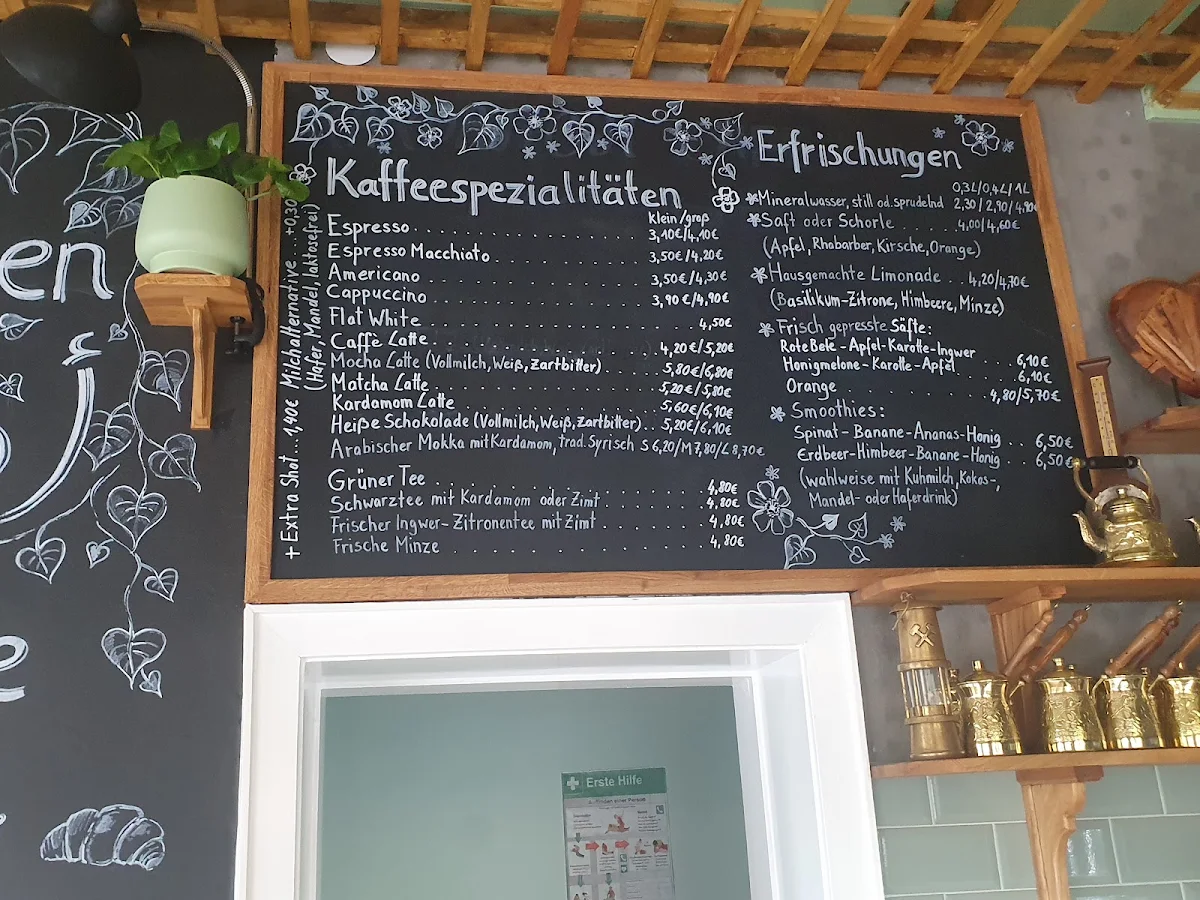 en
أ
e
+ Extra Shot...1,90€ Milchalternative...+0,30
(Hafer, Mandel, laktosefrei)
Kaffeespezialitäten
klein/groß
Espresso 3,10€/4,10€
Espresso Macchiato 3,50€/4,20€
Americano 3,50€/4,30€
Cappuccino 3,90€/4,90€
Flat White 4,50€
Caffè Latte 4,20€/5,20€
Mocha Latte (Vollmilch, Weiß, Zartbitter) 5,80€/6,80€
Matcha Latte 5,20€/5,80€
Kardamom Latte 5,60€/6,10€
Heiße Schokolade (Vollmilch, Weiß, Zartbitter) 5,20€/6,10€
Arabischer Mokka mit Kardamom, trad. Syrisch S 6,20/M 7,80/L 8,70€
Grüner Tee 4,80€
Schwarztee mit Kardamom oder Zimt 4,80€
Frischer Ingwer-Zitronentee mit Zimt 4,80€
Frische Minze 4,80€
Erfrischungen
0,3L/0,4L/1L
Mineralwasser, still od. sprudelnd 2,30/2,90/4,90€
Saft oder Schorle 4,00/4,60€
(Apfel, Rhabarber, Kirsche, Orange)
Hausgemachte Limonade 4,20/4,70€
(Basilikum-Zitrone, Himbeere, Minze)
Frisch gepresste Säfte:
Rote Bete-Apfel-Karotte-Ingwer 6,10€
Honigmelone-Karotte-Apfel 6,10€
Orange 4,80/5,70€
Smoothies:
Spinat-Banane-Ananas-Honig 6,50€
Erdbeer-Himbeer-Banane-Honig 6,50€
(wahlweise mit Kuhmilch, Kokos-,
Mandel- oder Haferdrink)
Erste Hilfe